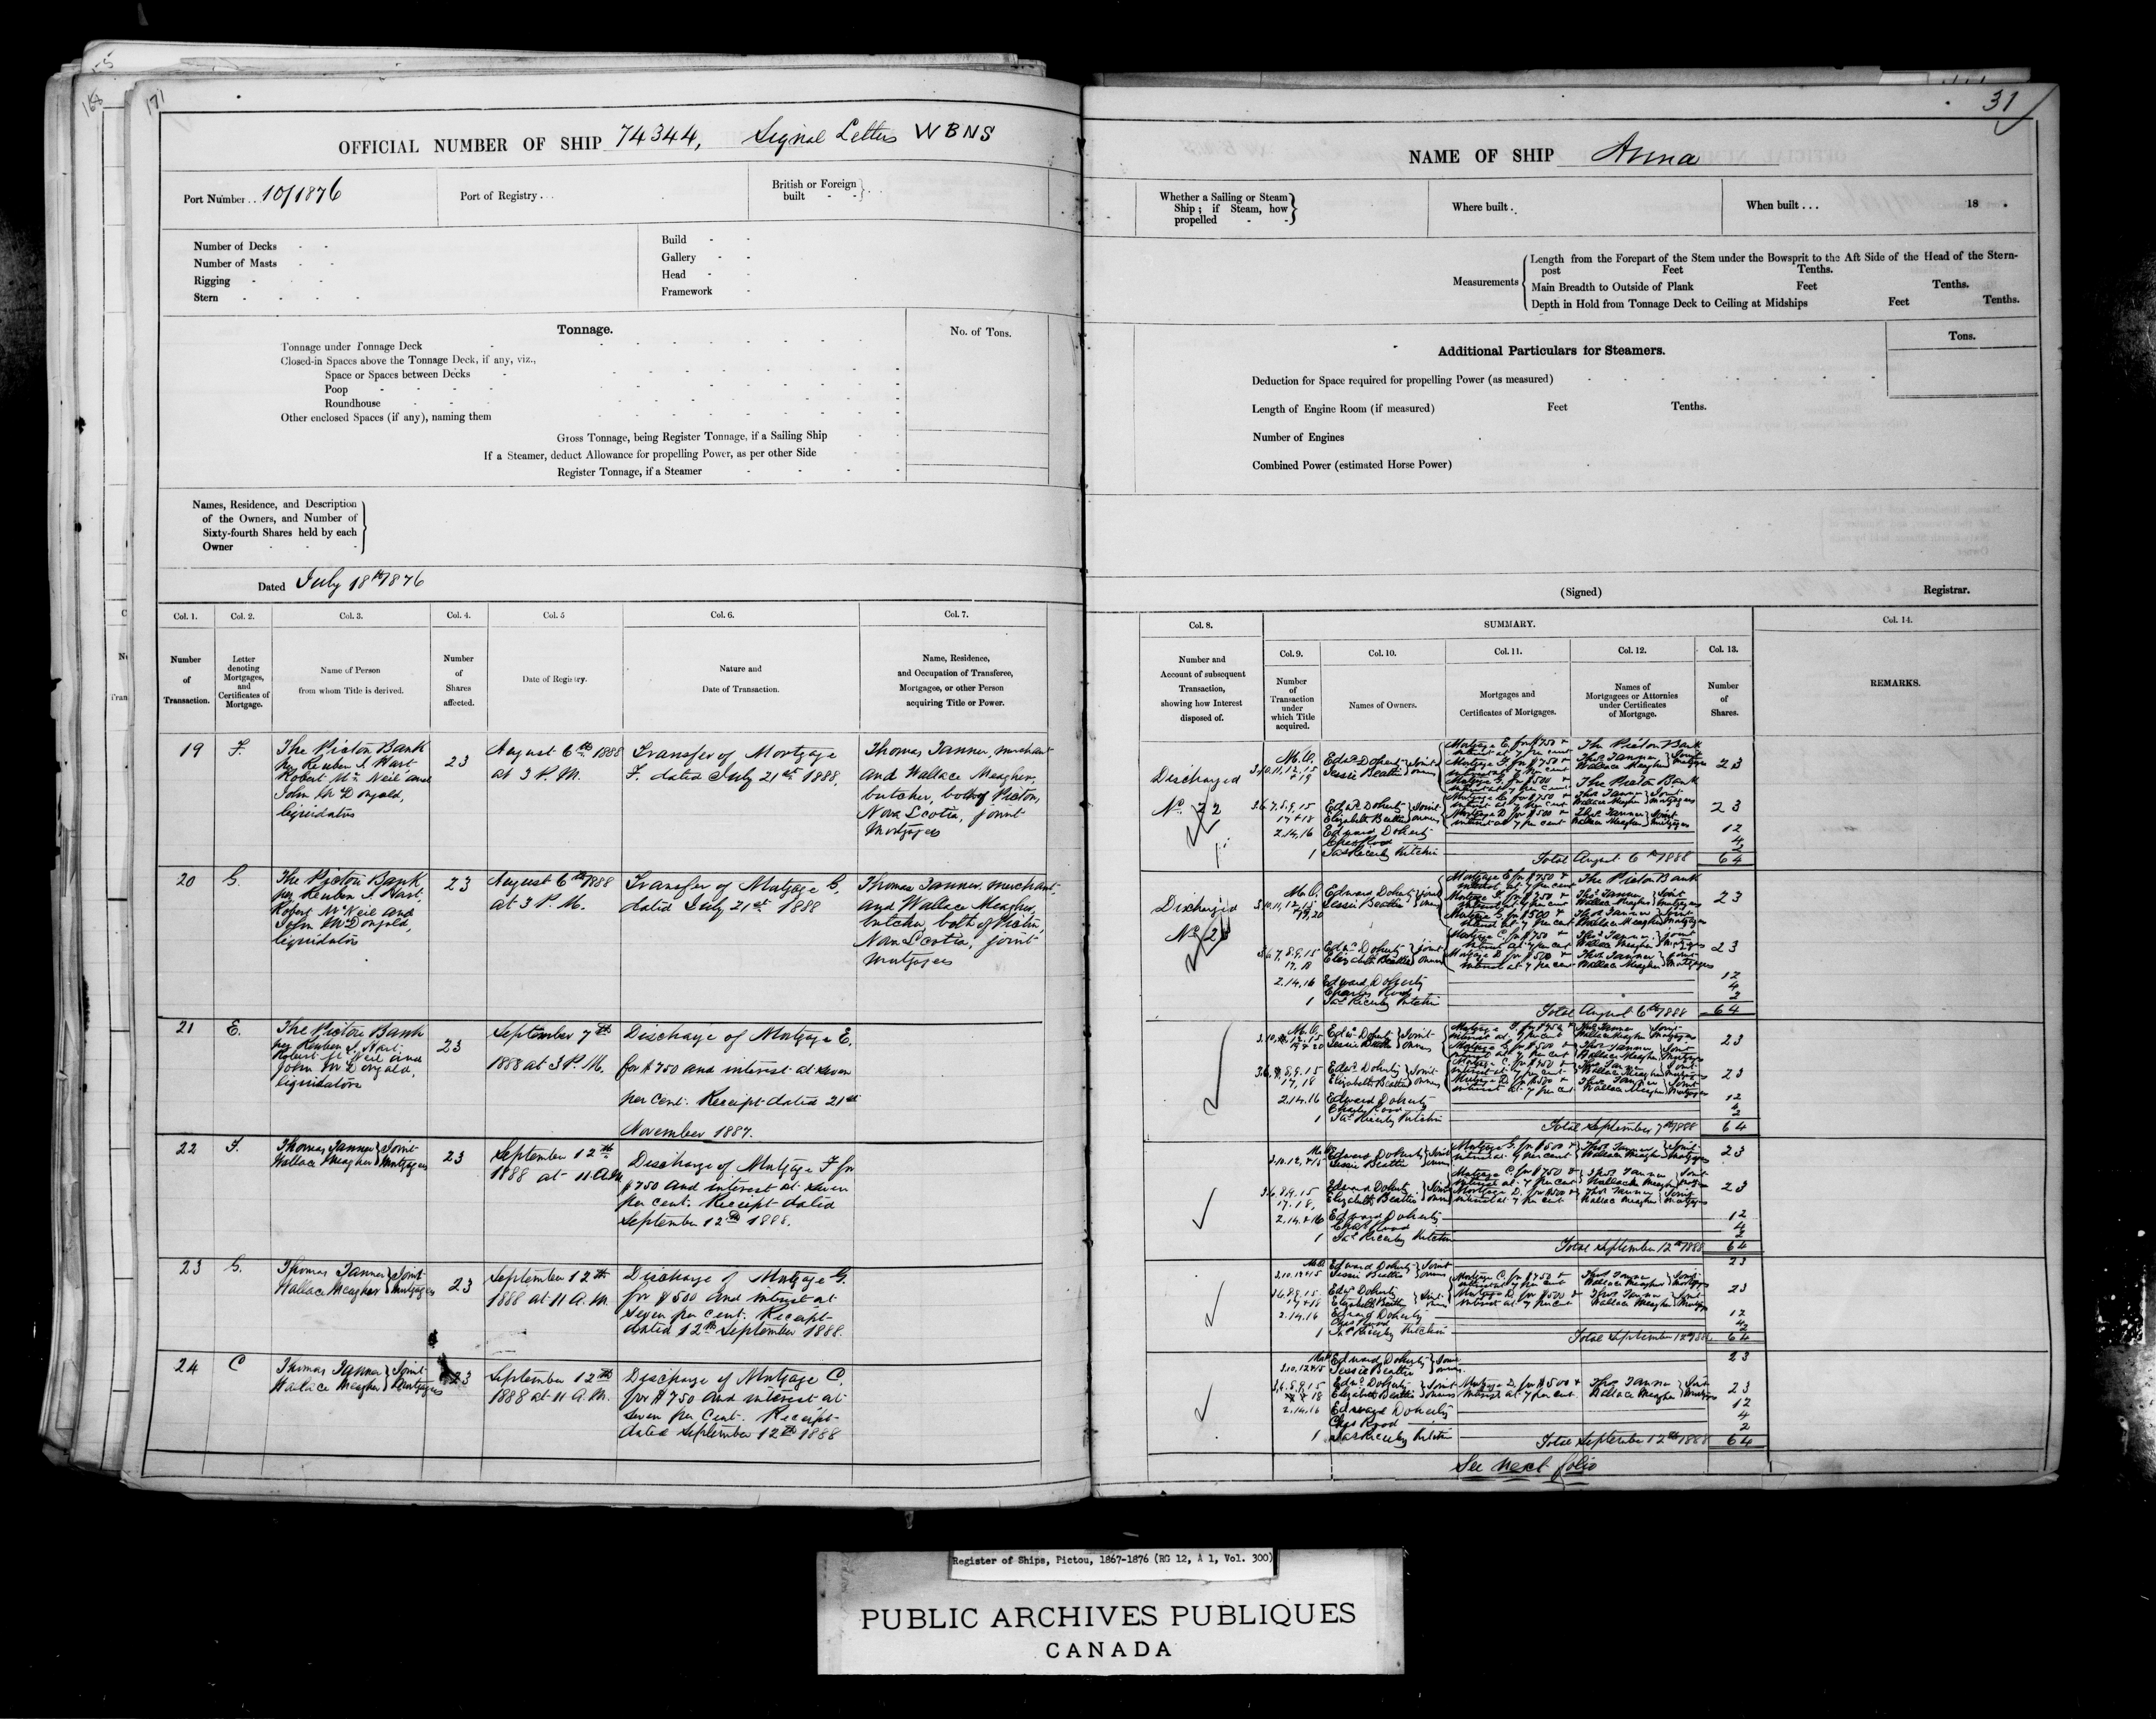 171
OFFICIAL NUMBER OF SHIP 74344, Signal Letters WBNS
Port Number .. 10/1876
Port of Registry . . .
British or Foreign built - -
Number of Decks - -
Number of Masts - -
Rigging - - -
Stern - - - -
Build - -
Gallery - -
Head - -
Framework -
Tonnage.
No. of Tons.
Tonnage under Tonnage Deck
Closed-in Spaces above the Tonnage Deck, if any, viz.,
Space or Spaces between Decks
Poop
Roundhouse
Other enclosed Spaces (if any), naming them
Gross Tonnage, being Register Tonnage, if a Sailing Ship
If a Steamer, deduct Allowance for propelling Power, as per other Side
Register Tonnage, if a Steamer
Names, Residence, and Description
of the Owners, and Number of
Sixty-fourth Shares held by each
Owner
Dated July 18th 1876
Col. 1.
Number
of
Transaction.
Col. 2.
Letter
denoting
Mortgages,
and
Certificates of
Mortgage.
Col. 3.
Name of Person
from whom Title is derived.
Col. 4.
Number
of
Shares
affected.
Col. 5
Date of Registry.
Col. 6.
Nature and
Date of Transaction.
Col. 7.
Name, Residence,
and Occupation of Transferee,
Mortgagee, or other Person
acquiring Title or Power.
19
F.
The Pictou Bank
per Reuben I. Hart
Robert Mc Neil and
John McDonald,
liquidators
23
August 6th 1888
at 3 P.M.
Transfer of Mortgage
F. dated July 21st 1888,
Thomas Tanner, merchant
and Wallace Meagher,
butcher, both of Pictou,
Nova Scotia, joint
mortgagees
20
G.
The Pictou Bank
per Reuben I. Hart,
Robert McNeil and
John McDonald,
liquidators
23
August 6th 1888
at 3 P.M.
Transfer of Mortgage G,
dated July 21st 1888
Thomas Tanner, merchant
and Wallace Meagher,
butcher, both of Pictou,
Nova Scotia, joint
mortgagees
21
E.
The Pictou Bank
per Reuben I. Hart
Robert McNeil and
John McDonald,
liquidators
23
September 7th
1888 at 3 P.M.
Discharge of Mortgage E.
for $750 and interest at seven
per cent. Receipt dated 21st
November 1887.
22
F.
Thomas Tanner } Joint
Wallace Meagher } Mortgagees
23
September 12th
1888 at 11 A.M.
Discharge of Mortgage F for
$750 and interest at seven
per cent. Receipt dated
September 12th 1888.
23
G.
Thomas Tanner } Joint
Wallace Meagher } Mortgagees
23
September 12th
1888 at 11 A.M.
Discharge of Mortgage G.
for $500 and interest at
seven per cent. Receipt
dated 12th September 1888.
24
C
Thomas Tanner } Joint
Wallace Meagher } Mortgagees
23
September 12th
1888 at 11 A.M.
Discharge of Mortgage C
for $750 and interest at
seven per Cent. Receipt
dated September 12th 1888
31
NAME OF SHIP Anna
Whether a Sailing or Steam
Ship; if Steam, how
propelled - -
Where built .
When built . . . 18 .
Measurements
Length from the Forepart of the Stem under the Bowsprit to the Aft Side of the Head of the Stern-
post Feet Tenths.
Main Breadth to Outside of Plank Feet Tenths.
Depth in Hold from Tonnage Deck to Ceiling at Midships Feet Tenths.
Additional Particulars for Steamers.
Tons.
Deduction for Space required for propelling Power (as measured)
Length of Engine Room (if measured) Feet Tenths.
Number of Engines
Combined Power (estimated Horse Power)
(Signed) Registrar.
Col. 8.
Number and
Account of subsequent
Transaction,
showing how Interest
disposed of.
SUMMARY.
Col. 9.
Number
of
Transaction
under
which Title
acquired.
Col. 10.
Names of Owners.
Col. 11.
Mortgages and
Certificates of Mortgages.
Col. 12.
Names of
Mortgagees or Attornies
under Certificates
of Mortgage.
Col. 13.
Number
of
Shares.
Col. 14.
REMARKS.
Discharged
No. 22
Edwd Doherty } Joint
Jessie Beattie } owners
Mortgage E. for $750 &
interest at 7 per cent
The Pictou Bank
23
Edwd Doherty } Joint
Elizabeth Beattie } owners
23
2.14.16 Edward Doherty 12
Chas Rood 4
1 2
Total August 6th 1888 64
Discharged
Edward Doherty } joint
Jessie Beattie
Mortgage E for $750 &
interest at 7 per cent
The Pictou Bank
23
Edwd Doherty } joint
Elizabeth Beattie } owners
23
2.14.16 Edward Doherty 12
Charles Rood 4
1 2
Total August 6th 1888 64
23
Edwd Doherty } Joint
Elizabeth Beattie } owners
23
2.14.16 Edward Doherty 12
1 2
Total September 7th 1888 64
Edward Doherty } Joint
Jessie Beattie } owners
Mortgage G. for $500 &
interest at 7 per cent
Thos Tanner } Joint
Wallace Meagher } mortgagees
23
Edward Doherty } Joint
Elizabeth Beattie } owners
23
2.14.&16 Edward Doherty 12
Chas Rood 4
1 2
Total September 12th 1888 64
Edward Doherty } Joint
Jessie Beattie } owners
23
Mortgage C. for $750 &
interest at 7 per cent
Mortgage D. for $500 &
interest at 7 per cent
23
2.14.16 Edward Doherty 12
Chas Rood 4
1 2
Total September 12th 1888 64
Edward Doherty
Jessie Beattie
23
Edwd Doherty } Joint
Elizabeth Beattie } owners
Mortgage D. for $500 &
interest at 7 per cent.
Thos Tanner } Joint
Wallace Meagher } Mortgagees
23
2.14.16 Edward Doherty 12
Chas Rood 4
1 2
Total September 12th 1888 64
See next folio
Register of Ships, Pictou, 1867-1876 (RG 12, A 1, Vol. 300)
PUBLIC ARCHIVES PUBLIQUES
CANADA